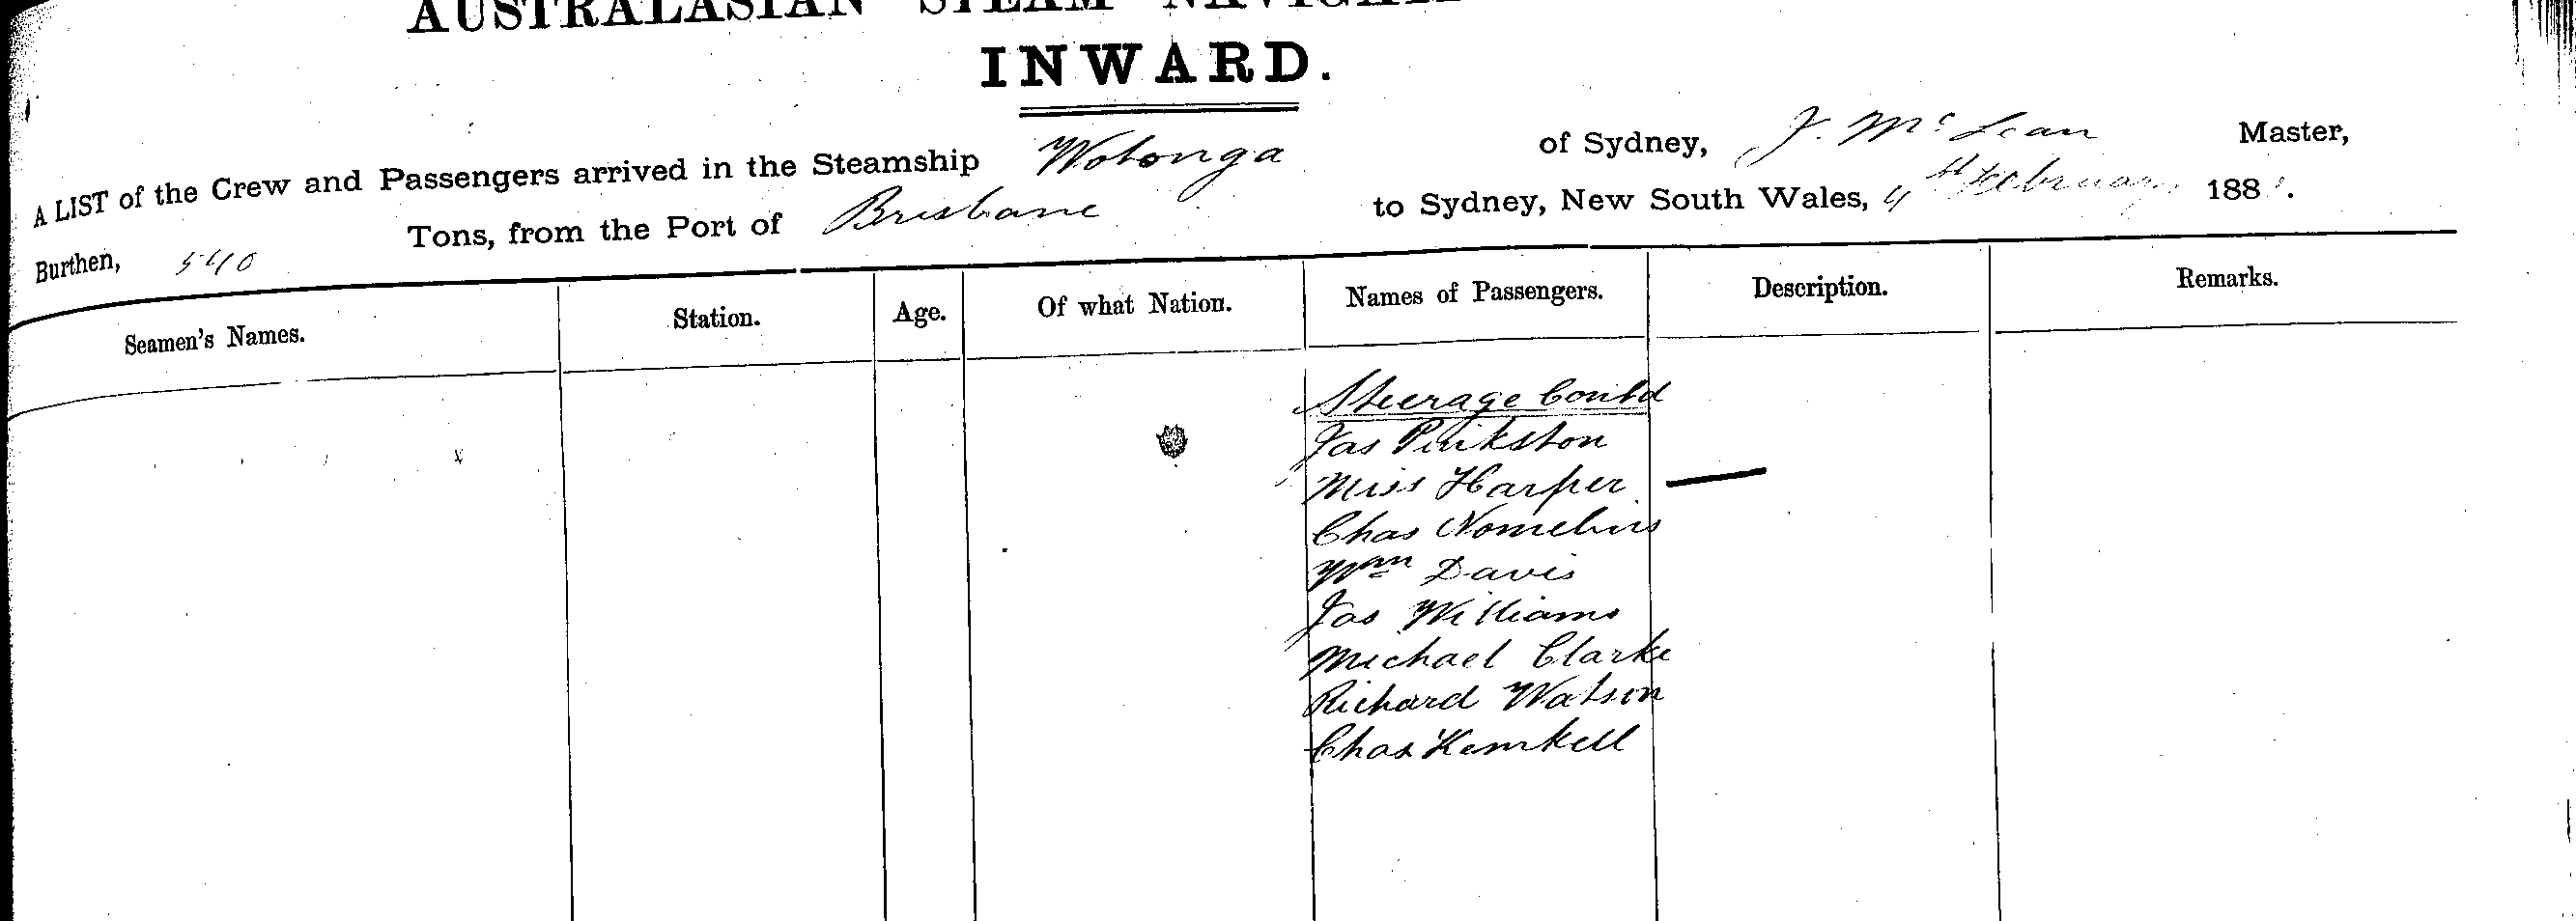 AUSTRALASIAN STEAM
INWARD.
A LIST of the Crew and Passengers arrived in the Steamship Wotonga of Sydney, J. McLean Master,
Burthen, 540 Tons, from the Port of Brisbane to Sydney, New South Wales, 4th February 188
Seamen's Names. Station. Age. Of what Nation. Names of Passengers. Description. Remarks.
Steerage Contd
Jas Pinkston
Miss Harper —
Chas
Wm Davis
Jas Williams
Michael Clarke
Richard Watson
Chas Kemkell